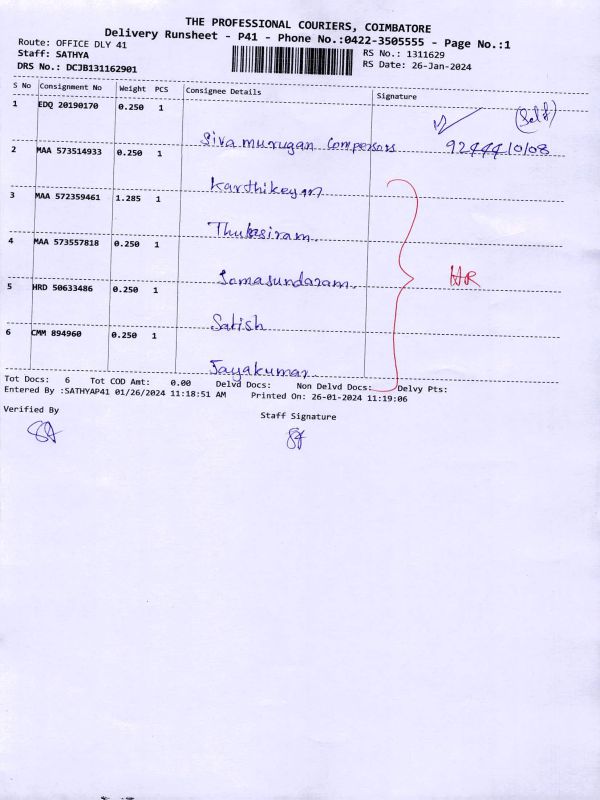 THE PROFESSIONAL COURIERS, COIMBATORE
Delivery Runsheet - P41 - Phone No.:0422-3505555 - Page No.:1
Route: OFFICE DLY 41
RS No.: 1311629
Staff: SATHYA
RS Date: 26-Jan-2024
DRS No.: DCJB131162901
S No Consignment No Weight PCS Consignee Details Signature
1 EDQ 20190170 0.250 1
(Self)
Siva murugan Compersors
2 MAA 573514933 0.250 1
Karthikeyan
3 MAA 572359461 1.285 1
Thulasiram.
4 MAA 573557818 0.250 1
Somasundaram.
HR
5 HRD 50633486 0.250 1
Satish
6 CMM 894960 0.250 1
Jayakumar
Tot Docs: 6 Tot COD Amt: 0.00 Delvd Docs: Non Delvd Docs: Delvy Pts:
Entered By :SATHYAP41 01/26/2024 11:18:51 AM Printed On: 26-01-2024 11:19:06
Verified By
Staff Signature